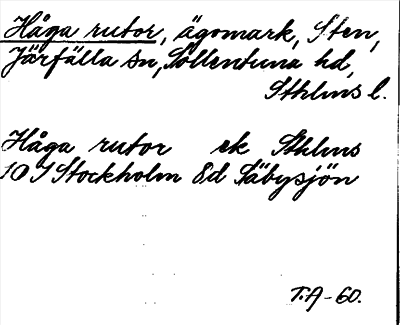 Håga rutor, ägomark, Sten,
Järfälla sn, Sollentuna hd,
Sthlms l.
Håga rutor ek Sthlms
10 I Stockholm 8d Säbysjön
T.A-60.